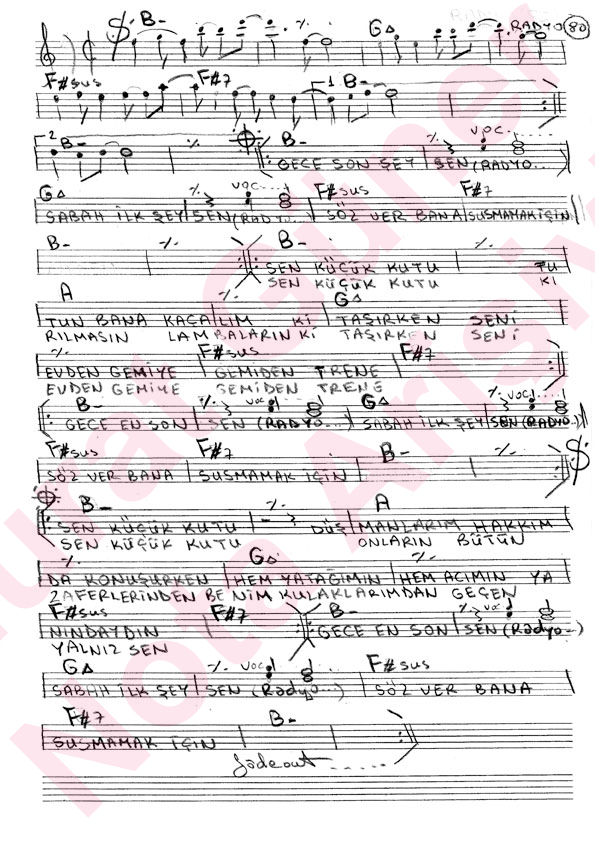 RADYO 80
B- ٪ G△
F#sus F#7 1 B-
2 B- ٪ B- ٪ VOC...
GECE SON ŞEY SEN (RADYO...
G△ ٪ VOC.... F#sus F#7
SABAH İLK ŞEY SEN (RAD.... SÖZ VER BANA SUSMAMAK İÇİN
B- ٪ B- ٪
SEN KÜÇÜK KUTU TU
SEN KÜÇÜK KUTU KI
A ٪ G△
TUN BANA KAÇALIM Kİ TAŞIRKEN SENİ
RILMASIN LAMBALARIN Kİ TAŞIRKEN SENİ
٪ F#sus F#7
EVDEN GEMİYE GEMİDEN TRENE
EVDEN GEMİYE GEMİDEN TRENE
B- ٪ VOC.... G△ ٪ VOC....
GECE EN SON SEN (RADYO...) SABAH İLK ŞEY SEN (RADYO..)
F#sus F#7 B- ٪
SÖZ VER BANA SUSMAMAK İÇİN
B- A
SEN KÜÇÜK KUTU DÜŞMANLARIM HAKKIM
SEN KÜÇÜK KUTU ONLARIN BÜTÜN
٪ G△ ٪
DA KONUŞURKEN HEM YATAĞIMIN HEM ACIMIN YA
ZAFERLERİNDEN BENİM KULAKLARIMDAN GEÇEN
F#sus F#7 B- ٪ VOC
NINDAYDIN GECE EN SON SEN (Radyo..)
YALNIZ SEN
G△ ٪ VOC F#sus
SABAH İLK ŞEY SEN (Radyo...) SÖZ VER BANA
F#7 B-
SUSMAMAK İÇİN
fadeout.......
Murat Güner
Nota Arşivi